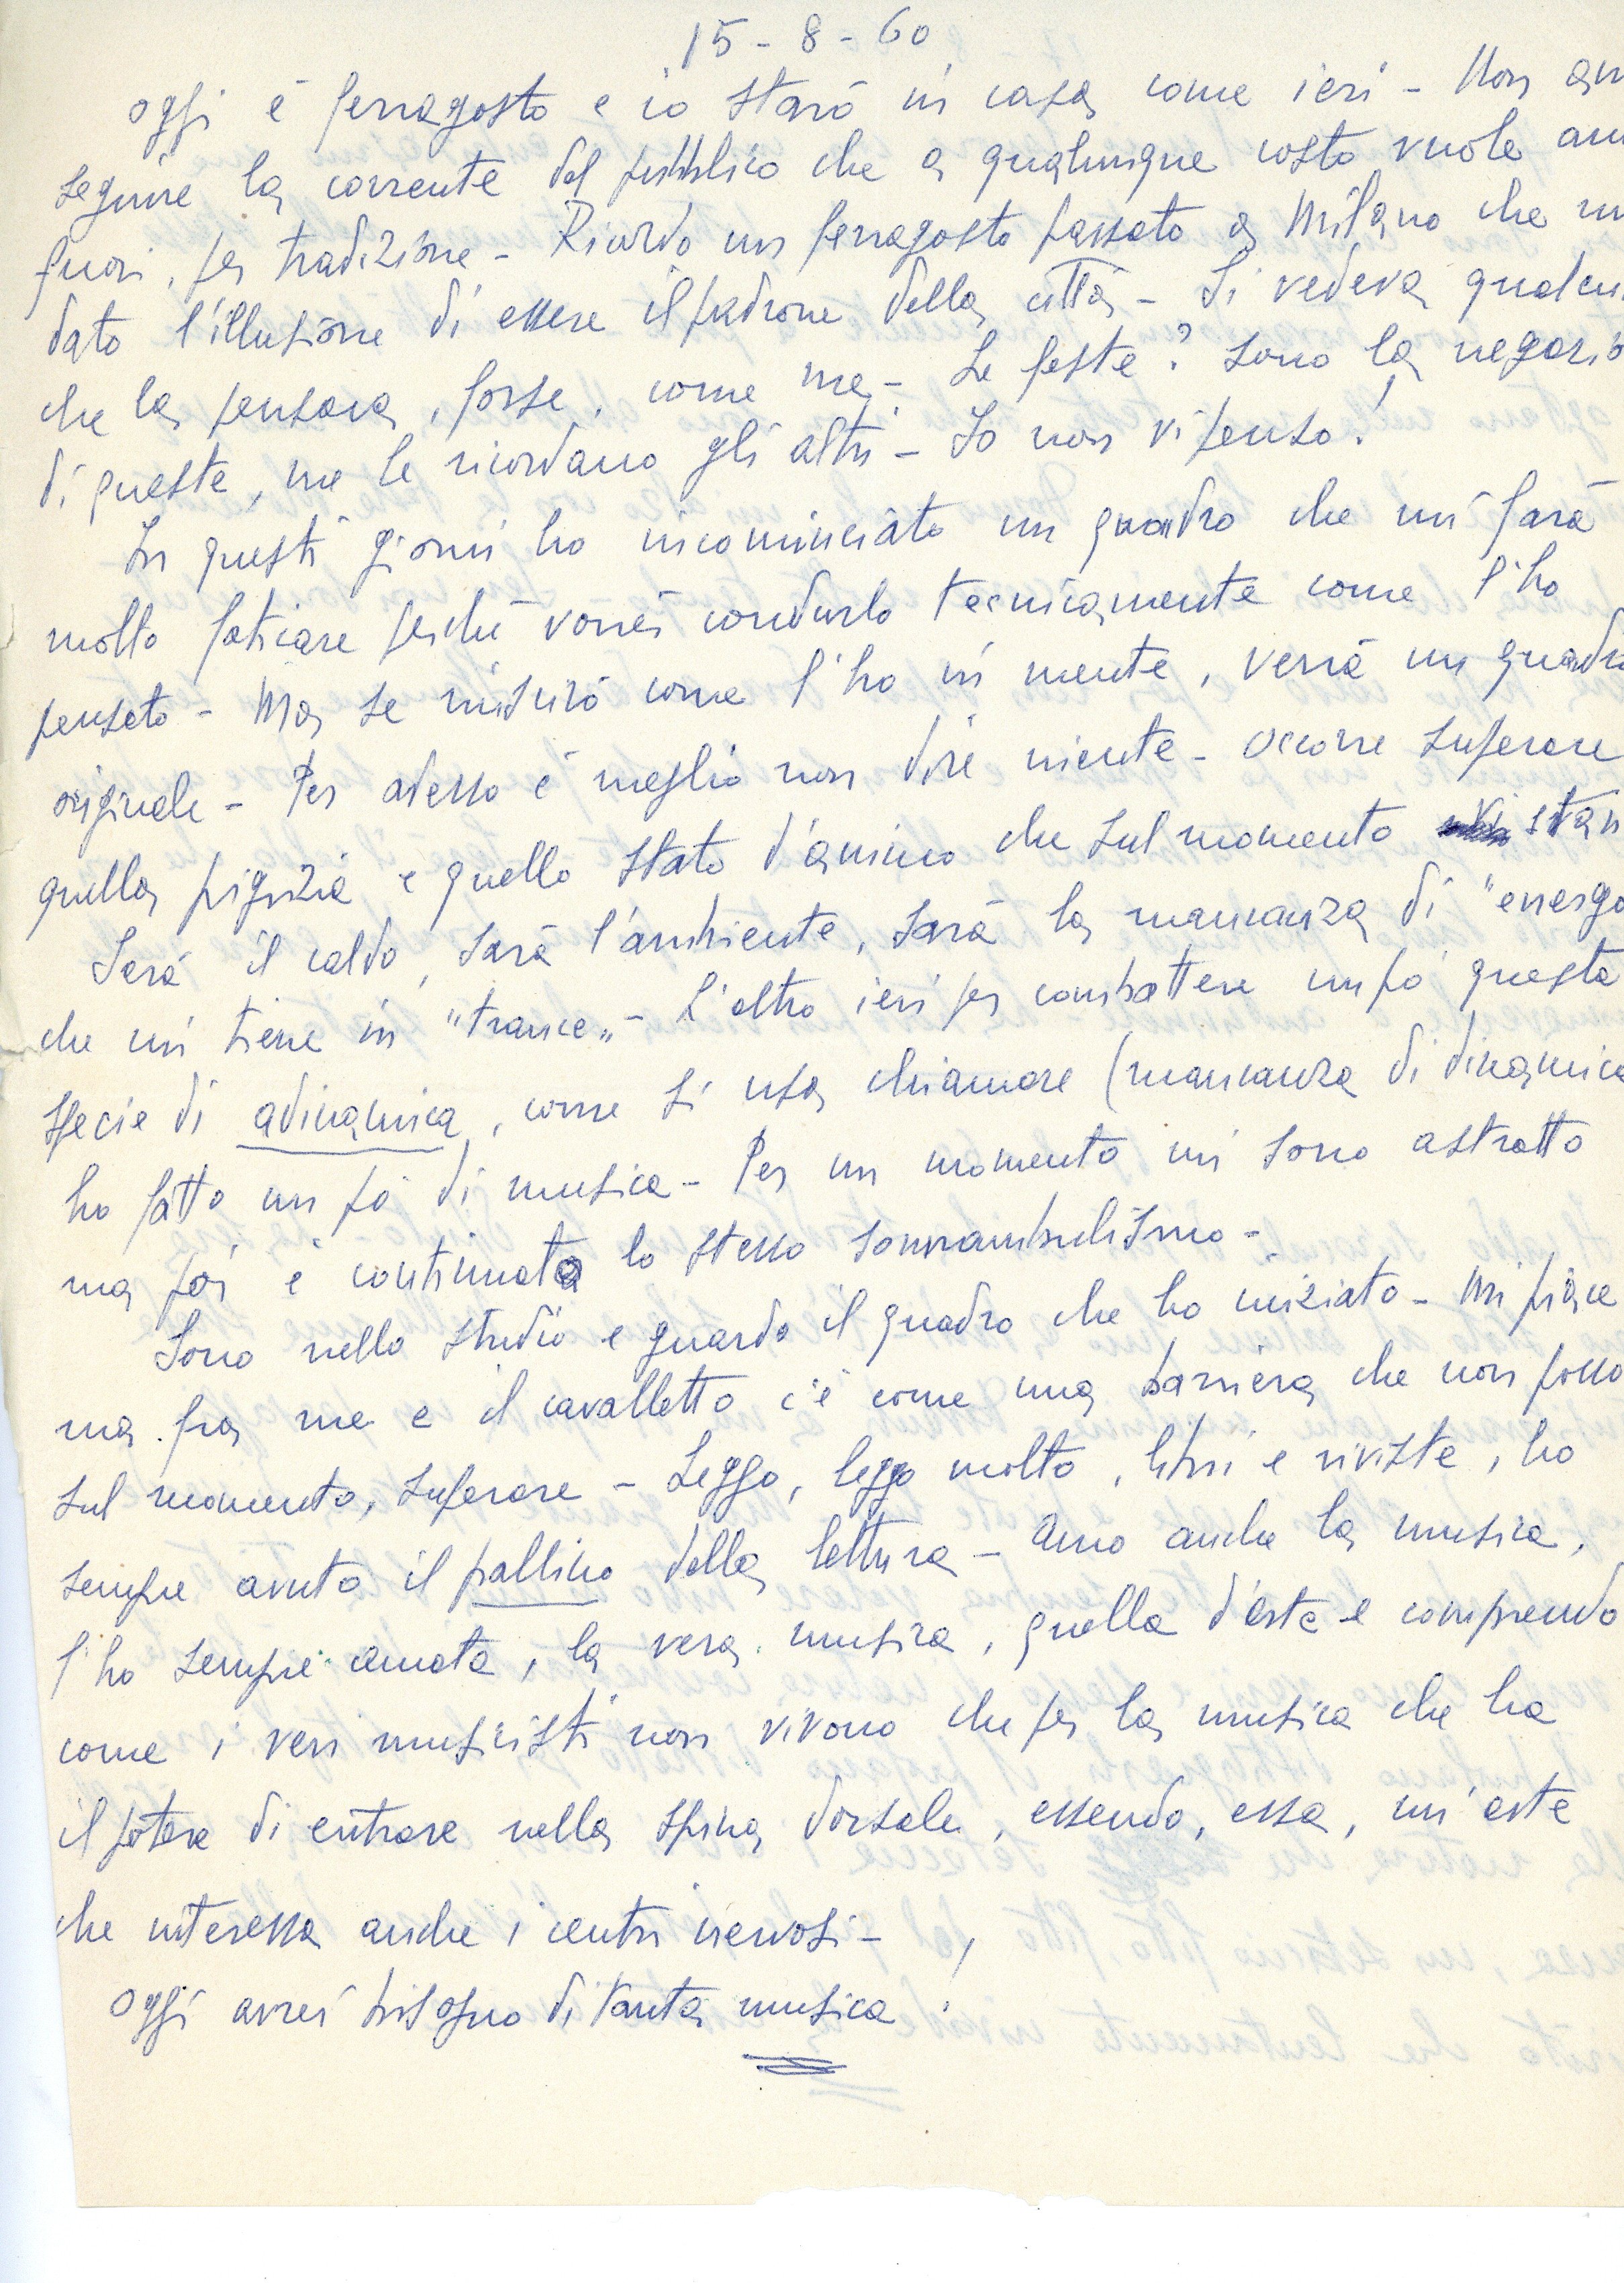 15-8-60
oggi è ferragosto e io starò in casa come ieri - Non am
seguire la corrente del pubblico che a qualunque costo vuole an
fuori, per tradizione - Ricordo un ferragosto passato a Milano che m
dato l'illusione di essere il padrone della città - Si vedeva qualcu
che la pensava, forse, come me - Le feste? sono la negazio
di queste, me le ricordano gli altri - Io non vi penso!
In questi giorni ho incominciato un quadro che mi farà
molto faticare perché vorrei condurlo tecnicamente come l'ho
pensato - Ma se riuscirò come l'ho in mente, verrà un quadro
originale - Per adesso è meglio non dire niente - occorre superare
quella pigrizia e quello stato d'animo che sul momento stan
Sarà il caldo, sarà l'ambiente, sarà la mancanza di "energo
che mi tiene in "trance" - L'altro ieri per combattere un pò questa
specie di adinamica, come si usa chiamare (mancanza di dinamica
ho fatto un pò di musica - Per un momento mi sono astratto
ma poi è continuato lo stesso sonnambulismo -
Sono nello studio e guardo il quadro che ho iniziato - Mi piace
ma fra me e il cavalletto c'è come una barriera che non posso
sul momento, superare - Leggo, leggo molto, libri e riviste, ho
sempre avuto il pallino della lettura - Amo anche la musica,
l'ho sempre amata, la vera musica, quella d'arte e comprendo
come i veri musicisti non vivono che per la musica che ha
il potere di entrare nella spina dorsale, essendo, essa, un'arte
che interessa anche i centri nervosi -
Oggi avrei bisogno di tanta musica!